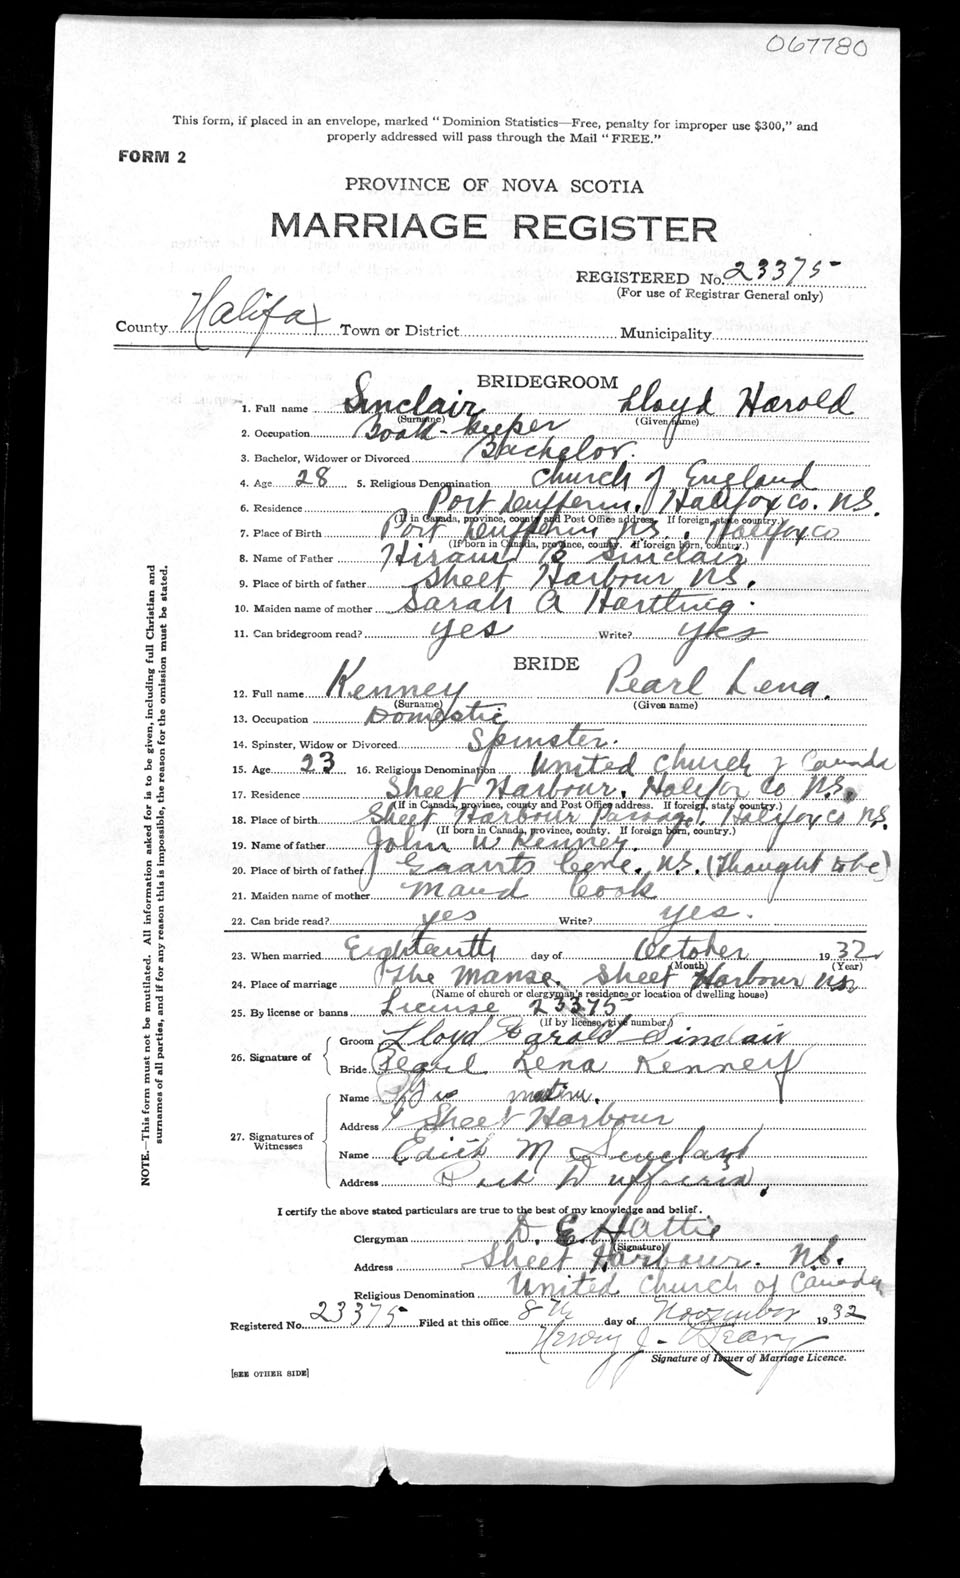 067780
This form, if placed in an envelope, marked "Dominion Statistics—Free, penalty for improper use $300," and
properly addressed will pass through the Mail "FREE."
FORM 2
PROVINCE OF NOVA SCOTIA
MARRIAGE REGISTER
REGISTERED No. 23375
(For use of Registrar General only)
County Halifax Town or District Municipality
BRIDEGROOM
1. Full name Sinclair Lloyd Harold
(Surname) (Given name)
2. Occupation Book-keeper
3. Bachelor, Widower or Divorced Bachelor.
4. Age 28 5. Religious Denomination Church of England
6. Residence Port Dufferin, Halifax Co. N.S.
(If in Canada, province, county and Post Office address. If foreign, state country.)
7. Place of Birth Port Dufferin N.S. Halifax Co
(If born in Canada, province, county. If foreign born, country.)
8. Name of Father Hiram B Sinclair
9. Place of birth of father Sheet Harbour N.S.
10. Maiden name of mother Sarah A Hartling.
11. Can bridegroom read? yes Write? yes
BRIDE
12. Full name Kenney Pearl Lena.
(Surname) (Given name)
13. Occupation Domestic
14. Spinster, Widow or Divorced Spinster.
15. Age 23 16. Religious Denomination United Church of Canada
17. Residence Sheet Harbour, Halifax Co N.S.
(If in Canada, province, county and Post Office address. If foreign, state country.)
18. Place of birth Sheet Harbour Passage, Halifax Co N.S.
(If born in Canada, province, county. If foreign born, country.)
19. Name of father John W Kenney.
20. Place of birth of father Cove. N.S. (Thought to be)
21. Maiden name of mother Maud Cook
22. Can bride read? yes Write? yes.
23. When married Eighteenth day of October 1932
(Month) (Year)
24. Place of marriage The Manse, Sheet Harbour N.S.
(Name of church or clergyman's residence or location of dwelling house)
25. By license or banns License 23375
(If by license, give number)
26. Signature of Groom Lloyd Harold Sinclair
Bride Pearl Lena Kenney
27. Signatures of Witnesses Name
Address Sheet Harbour
Name Edith M Sinclair
Address Port Dufferin,
I certify the above stated particulars are true to the best of my knowledge and belief.
Clergyman D. E. Hattie
(Signature)
Address Sheet Harbour. N.S.
Religious Denomination United Church of Canada
Registered No. 23375 Filed at this office 8th day of November 1932
Henry J. O'Leary
Signature of Issuer of Marriage Licence.
[SEE OTHER SIDE]
NOTE.—This form must not be mutilated. All information asked for is to be given, including full Christian and
surnames of all parties, and if for any reason this is impossible, the reason for the omission must be stated.